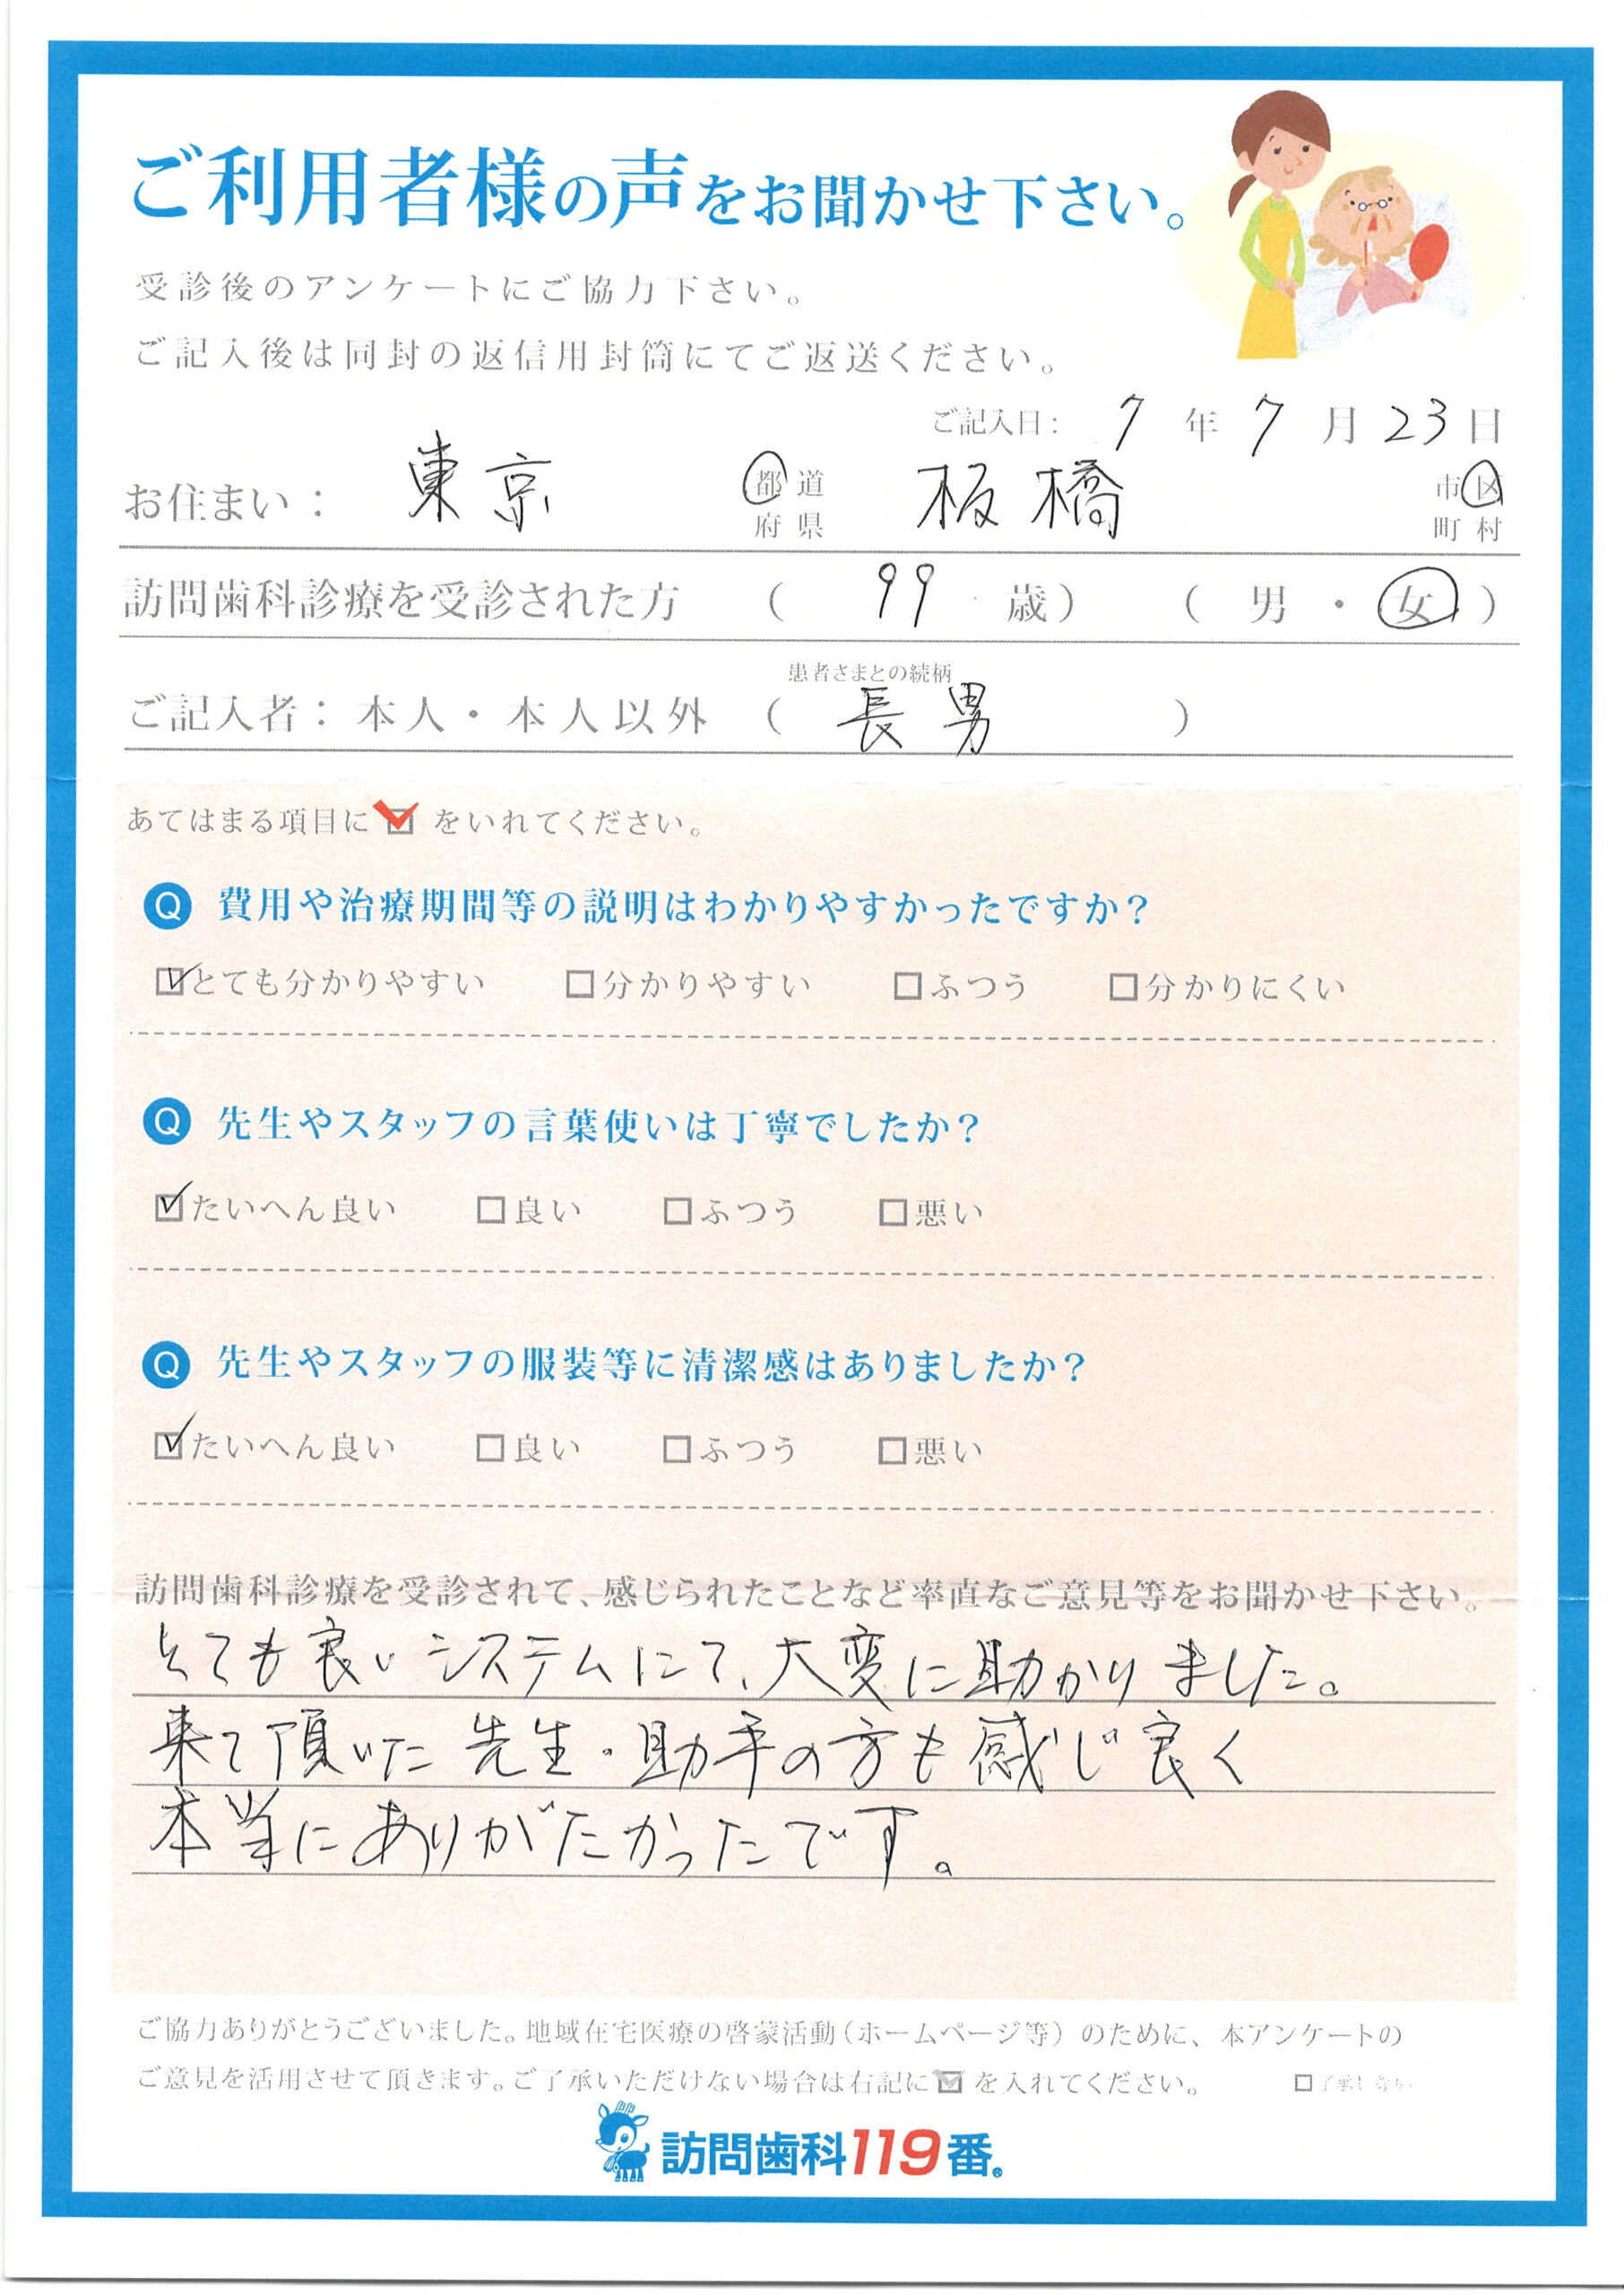 ご利用者様の声をお聞かせ下さい。
受診後のアンケートにご協力下さい。
ご記入後は同封の返信用封筒にてご返送ください。
ご記入日： 7 年 7 月 23 日
お住まい： 東京 都道府県 板橋 市区町村
訪問歯科診療を受診された方 （ 99 歳） （ 男 ・ 女 ）
患者さまとの続柄
ご記入者：本人・本人以外 （ 長男 ）
あてはまる項目に☑をいれてください。
Q 費用や治療期間等の説明はわかりやすかったですか？
☑とても分かりやすい □分かりやすい □ふつう □分かりにくい
Q 先生やスタッフの言葉使いは丁寧でしたか？
☑たいへん良い □良い □ふつう □悪い
Q 先生やスタッフの服装等に清潔感はありましたか？
☑たいへん良い □良い □ふつう □悪い
訪問歯科診療を受診されて、感じられたことなど率直なご意見等をお聞かせ下さい。
とても良いシステムにて、大変に助かりました。
来て頂いた先生・助手の方も感じ良く
本当にありがたかったです。
ご協力ありがとうございました。地域在宅医療の啓蒙活動（ホームページ等）のために、本アンケートの
ご意見を活用させて頂きます。ご了承いただけない場合は右記に☑を入れてください。 □了承しない
訪問歯科119番®